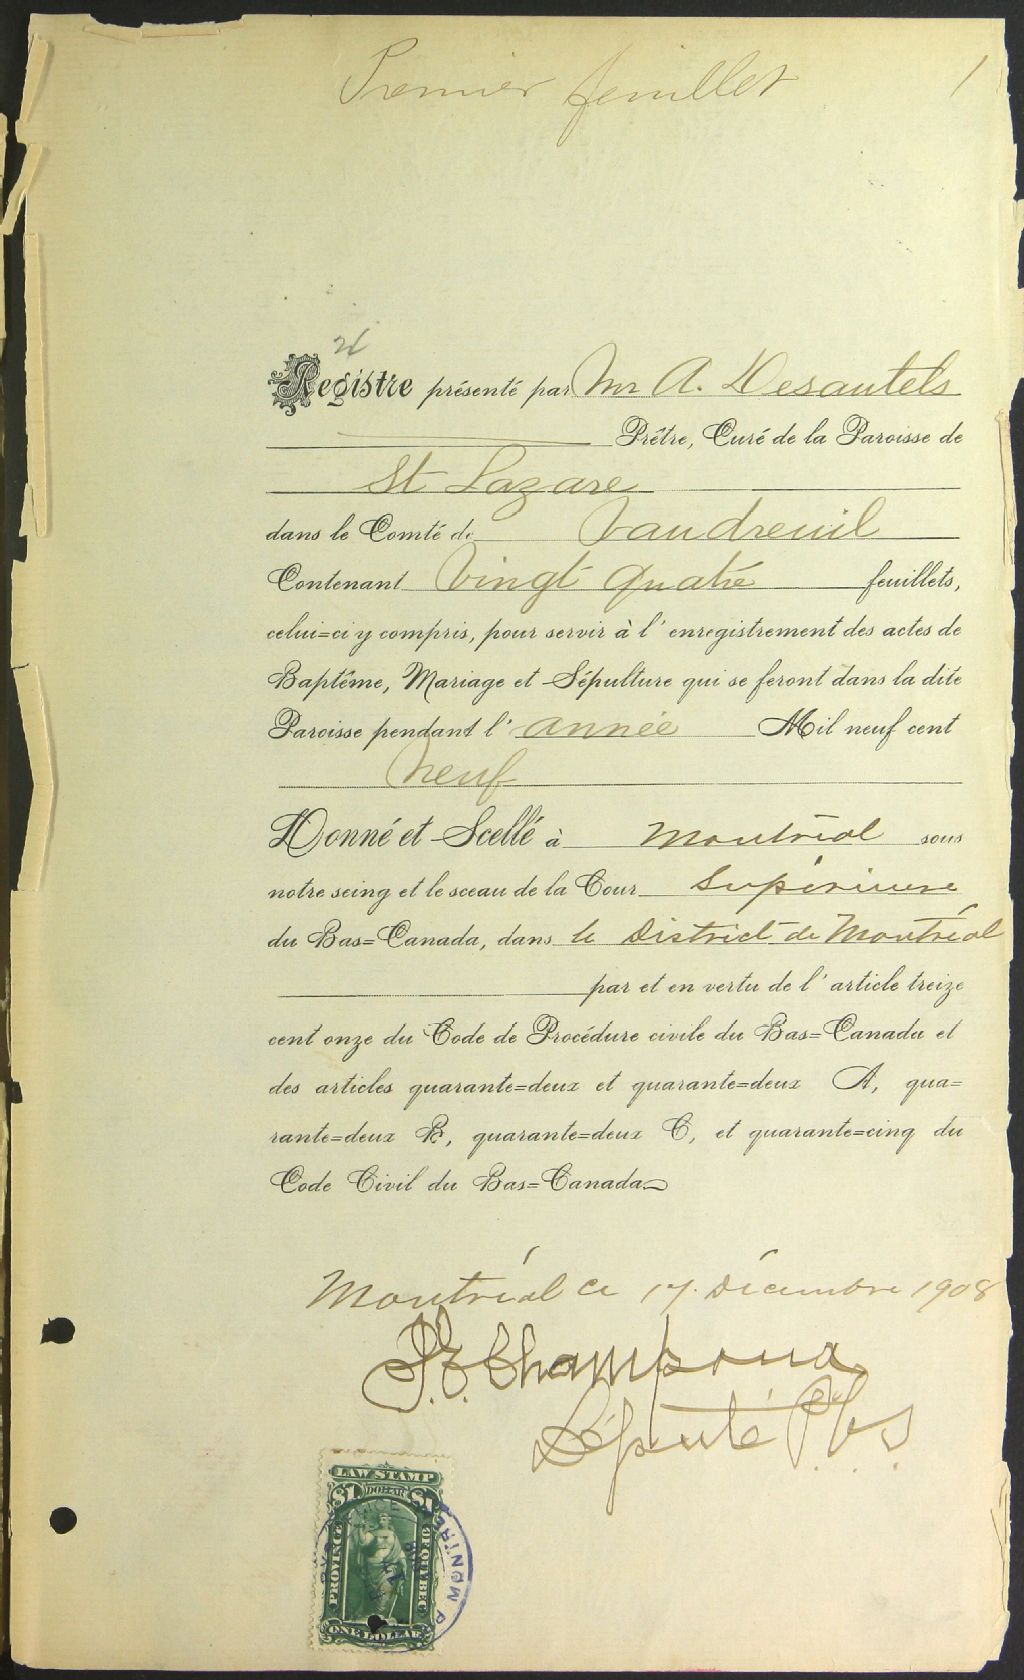 Premier feuillet 1
Registre présenté par Mr A. Desautels
Prêtre, Curé de la Paroisse de
St Lazare
dans le Comté de Vaudreuil
Contenant Vingt quatre feuillets,
celui=ci y compris, pour servir à l'enregistrement des actes de
Baptême, Mariage et Sépulture qui se feront dans la dite
Paroisse pendant l'année Mil neuf cent
neuf
Donné et Scellé à Montréal sous
notre seing et le sceau de la Cour Supérieure
du Bas=Canada, dans le District de Montréal
par et en vertu de l'article treize
cent onze du Code de Procédure civile du Bas=Canada et
des articles quarante=deux et quarante=deux A, qua=
rante=deux B, quarante=deux C, et quarante=cinq du
Code Civil du Bas=Canada
Montréal ce 17 Décembre 1908
Champoux
Député P.C.S.
LAW STAMP
$1 DOLLAR $1
PROVINCE
OF QUEBEC
ONE DOLLAR
MONTREAL